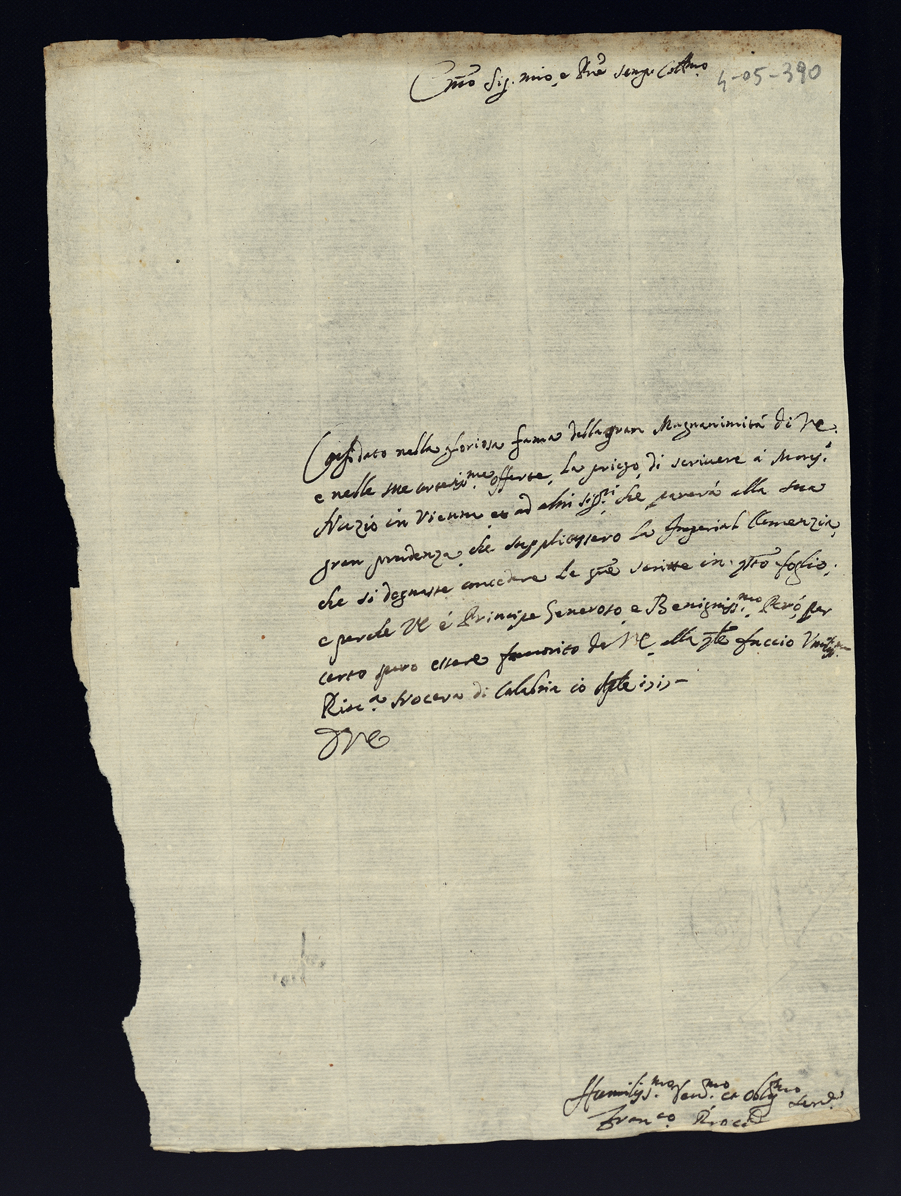 Em̃o Sig. mio, e Prẽ semp. Coll.mo
4-05-390
Confidato nella gloriosa fama della gran Magnanimità di VE.
e nelle sue cortesis.me offerte, La priego, di scriuere à Mons.r
Nuzio in Vienna et ad altri sig.ri, che parerà alla sua
gran prudenza, che supplicassero la Imperial Clemenza,
che si degnasse concedere le gr̃e scritte in q̃sto foglio;
e perche VE è Principe Generoso, e Benignis.mo Però, per
certo spero essere fauorito da VE, alla q̃le faccio
Riu.a Nocera di Calabria
DVE
Humilis.mo Deu.mo et Oblig.mo Serue
Fran.co